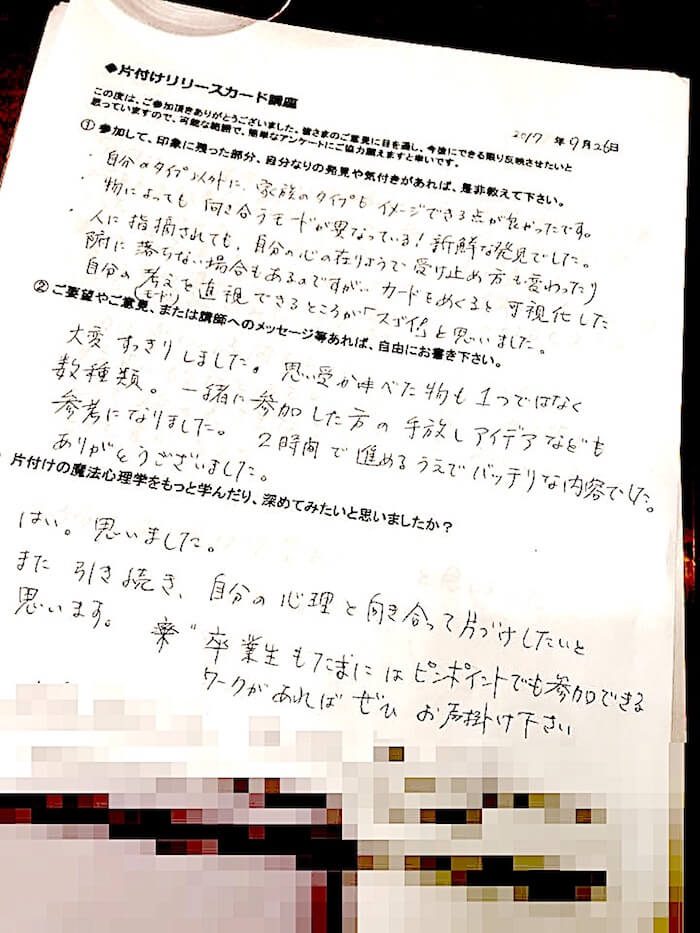 ◆片付けリリースカード講座
2017 年9月26日
この度は、ご参加頂きありがとうございました。皆さまのご意見に目を通し、今後にできる限り反映させたいと
思っていますので、可能な範囲で、簡単なアンケートにご協力願えますと幸いです。
① 参加して、印象に残った部分、自分なりの発見や気付きがあれば、是非教えて下さい。
・自分のタイプ以外に、家族のタイプもイメージできる点が良かったです。
・物によっても 向き合うモードが異なっている！新鮮な発見でした。
・人に指摘されても、自分の心の在りようで 受け止め方も変わったり
腑に落ちない場合もあるのですが… カードをめくると 可視化した
自分の 考え(モード)を直視できるところが「スゴイ!」と思いました。
② ご要望やご意見、または講師へのメッセージ等あれば、自由にお書き下さい。
大変 すっきりしました。 思い 浮べた物も 1つではなく
数種類。 一緒に参加した方の 手放しアイデアなども
参考になりました。 2時間で進めるうえでバッチリな内容でした。
ありがとうございました。
片付けの魔法心理学をもっと学んだり、深めてみたいと思いましたか？
はい。思いました。
また 引き続き、自分の心理と向き合って片づけしたいと
思います。 卒業生もたまにはピンポイントでも参加できる
ワークがあれば ぜひ お声掛け下さい